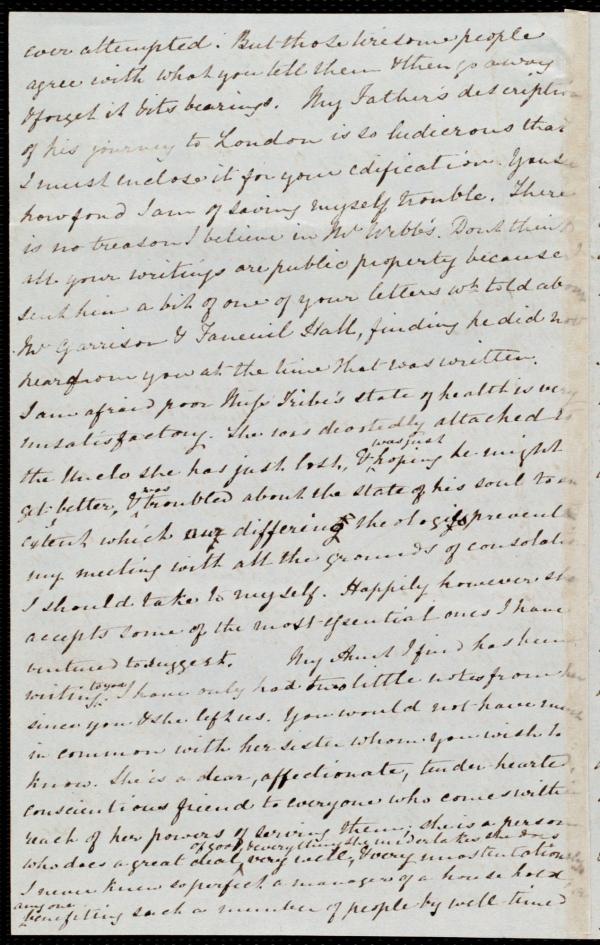 ever attempted. But those tiresome people
agree with what you tell them & then go away
& forget it & its bearings. My Father's description
of his journey to London is so ludicrous that
I must enclose it for your edification. You see
how fond I am of saving myself trouble. There
is no treason I believe in Mr Webb's. Dont think
all your writings are public property because I
sent him a bit of one of your letters wh told about
Mr Garrison & Faneuil Hall, finding he did not
hear from you at the time that was written.
I am afraid poor Miss Tribe's state of health is very
unsatisfactory. She was devotedly attached to
the Uncle she has just lost, & was just hoping he might
get better, & was troubled about the state of his soul to an
extent which our differing theologies prevent
my meeting with all the grounds of consolation
I should take to myself. Happily however she
accepts some of the most essential ones I have
ventured to suggest. My Aunt I find has been
writing to you. I have only had two little notes from her
since you & she left us. You would not have much
in common with her sister whom you wish to
know. She is a dear, affectionate, tender hearted,
conscientious friend to everyone who comes within
reach of her powers of serving them; she is a person
who does a great deal of good & everything she undertakes she does very well, & very unostentatiously
I never knew so perfect a manager of a household,
any one benefiting such a number of people by well-timed